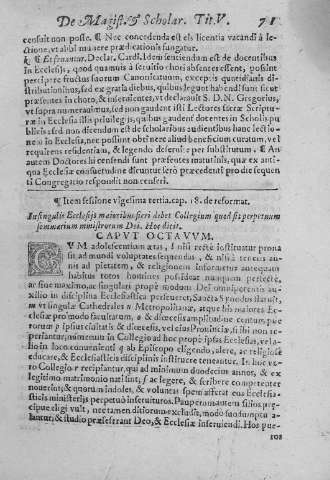 De Magist. & Scholar. Tit. V. 71
censuit non posse. ¶ Nec concedenda est els licentia vacandi à le-
ctione, vt abbi munere prædicationis fungatur.
k ¶ Et fruantur, Declar. Cardi. Idem sentiendum est de docentibus
in Ecclesijs, quod quamuis à seruitio chori absens essent, possint
percipere fructus suorum Canonicatuum, exceptis quotidianis di-
stributionibus, sed ex gratia diebus, quibus legunt habendi sunt sicut
præsentes in choro, & inseruientes, vt declarauit S. D. N. Gregorius,
vt supra numerauimus, sed non gaudent isti Lectores sacræ Scriptu-
ræ in Ecclesijs illis priuilegijs, quibus gaudent docentes in Scholis pu
blicis: sed non dicendum est de scholaribus audientibus hanc lectio-
nem in Ecclesia, nec possunt obtinere aliud beneficium curatum, vel
requirens residentiam, & legendo deseruire per substitutum. ¶ An
autem Doctores hi censendi sunt præsentes matutinis, quæ ex anti-
qua Ecclesiæ consuetudine dicuntur serò præcedenti pro die sequen
ti Congregatio respondit non censeri.
¶ Item sessione vigesima tertia, cap. 18. de reformat.
In singulis Ecclesijs maioribus fieri debet Collegium quod sit perpetuum
seminarium ministrorum Dei. Hoc dicit.
CAPVT OCTAVVM.
CVM adolescentium ætas, nisi rectè instituatur prona
sit ad mundi voluptates sequendas, & nisi à teneris an-
nis ad pietatem, & religionem informetur antequam
habitus totos homines possideat nunquam perfectè,
ac sine maximo, ac singulari propè modum Dei omnipotentis au-
xilio in disciplina Ecclesiastica perseueret, Sancta Synodus statuit,
vt singulæ Cathedrales Metropolitanæ, atque his maiores Ec-
clesiæ pro modo facultatum, & diœcesis amplitudine certum pue-
rorum ipsius ciuitatis & diœcesis, vel eius Prouinciæ, si ibi non re-
periantur, numerum in Collegio ad hoc propè ipsas Ecclesias, vel a-
lio in loco conuenienti ab Episcopo eligendo, alere, ac religiosè
educare, & Ecclesiasticis disciplinis instituere teneantur. In hoc ve-
ro Collegio recipiantur, qui ad minimum duodecim annos, & ex
legitimo matrimonio nati sint, ac legere, & scribere competenter
nouerint, & quorum indoles, & voluntas spem afferat eos Ecclesia-
sticis ministerijs perpetuò inseruituros. Pauperum autem filios præ-
cipuè eligi vult, nec tamen ditiorum excludit, modo suo sumptu a-
lantur, & studio præseferant Deo, & Ecclesiæ inseruiendi. Hos pue-
ros